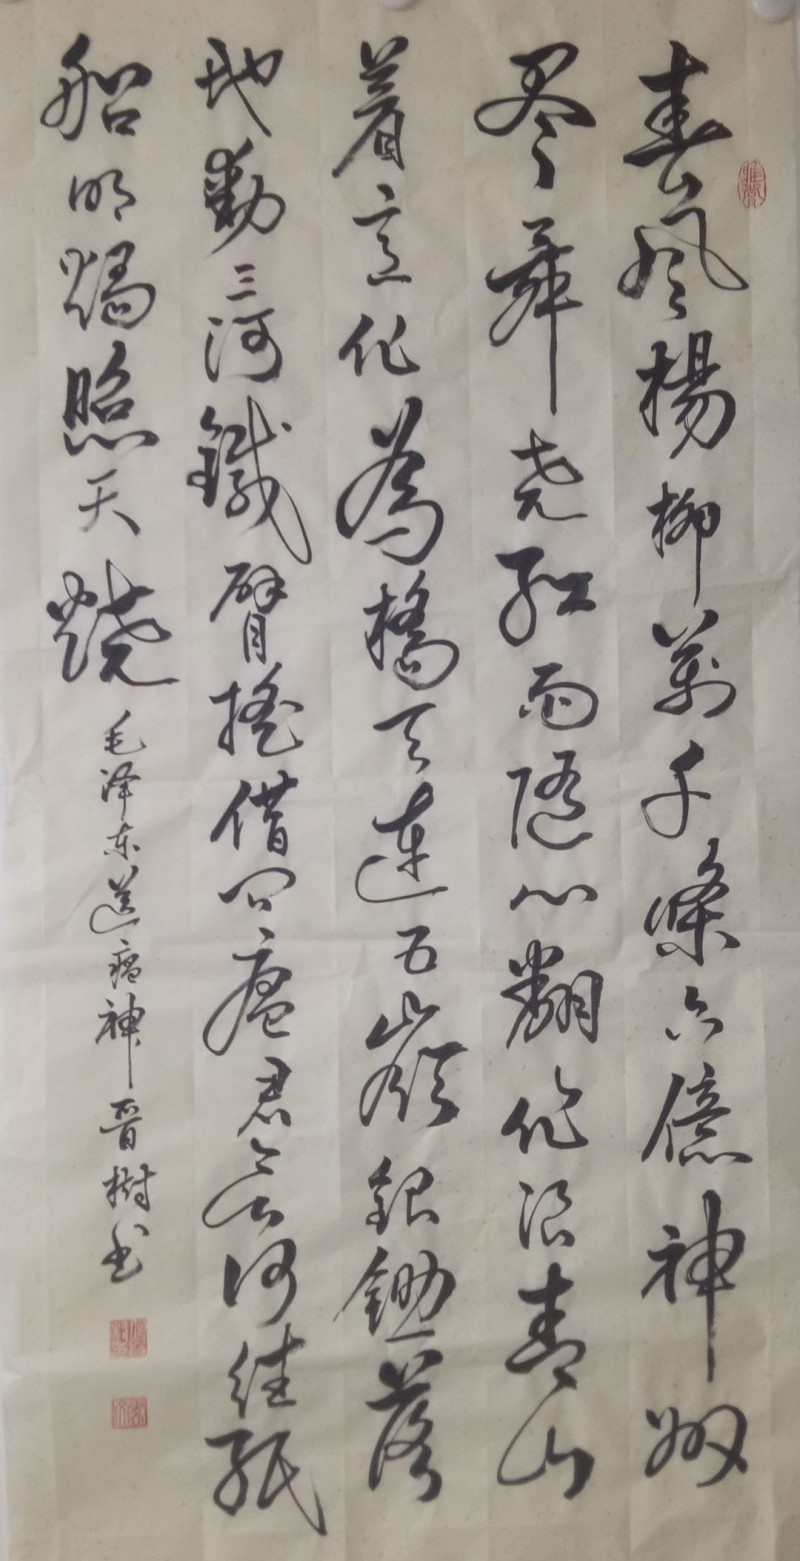 春風楊柳萬千條六億神州
尽舜堯紅雨隨心翻作浪青山
着意化為橋天連五嶺銀鋤落
地動三河鐵臂搖借问瘟君欲何往紙
船明燭照天燒毛泽东送瘟神晋樹书